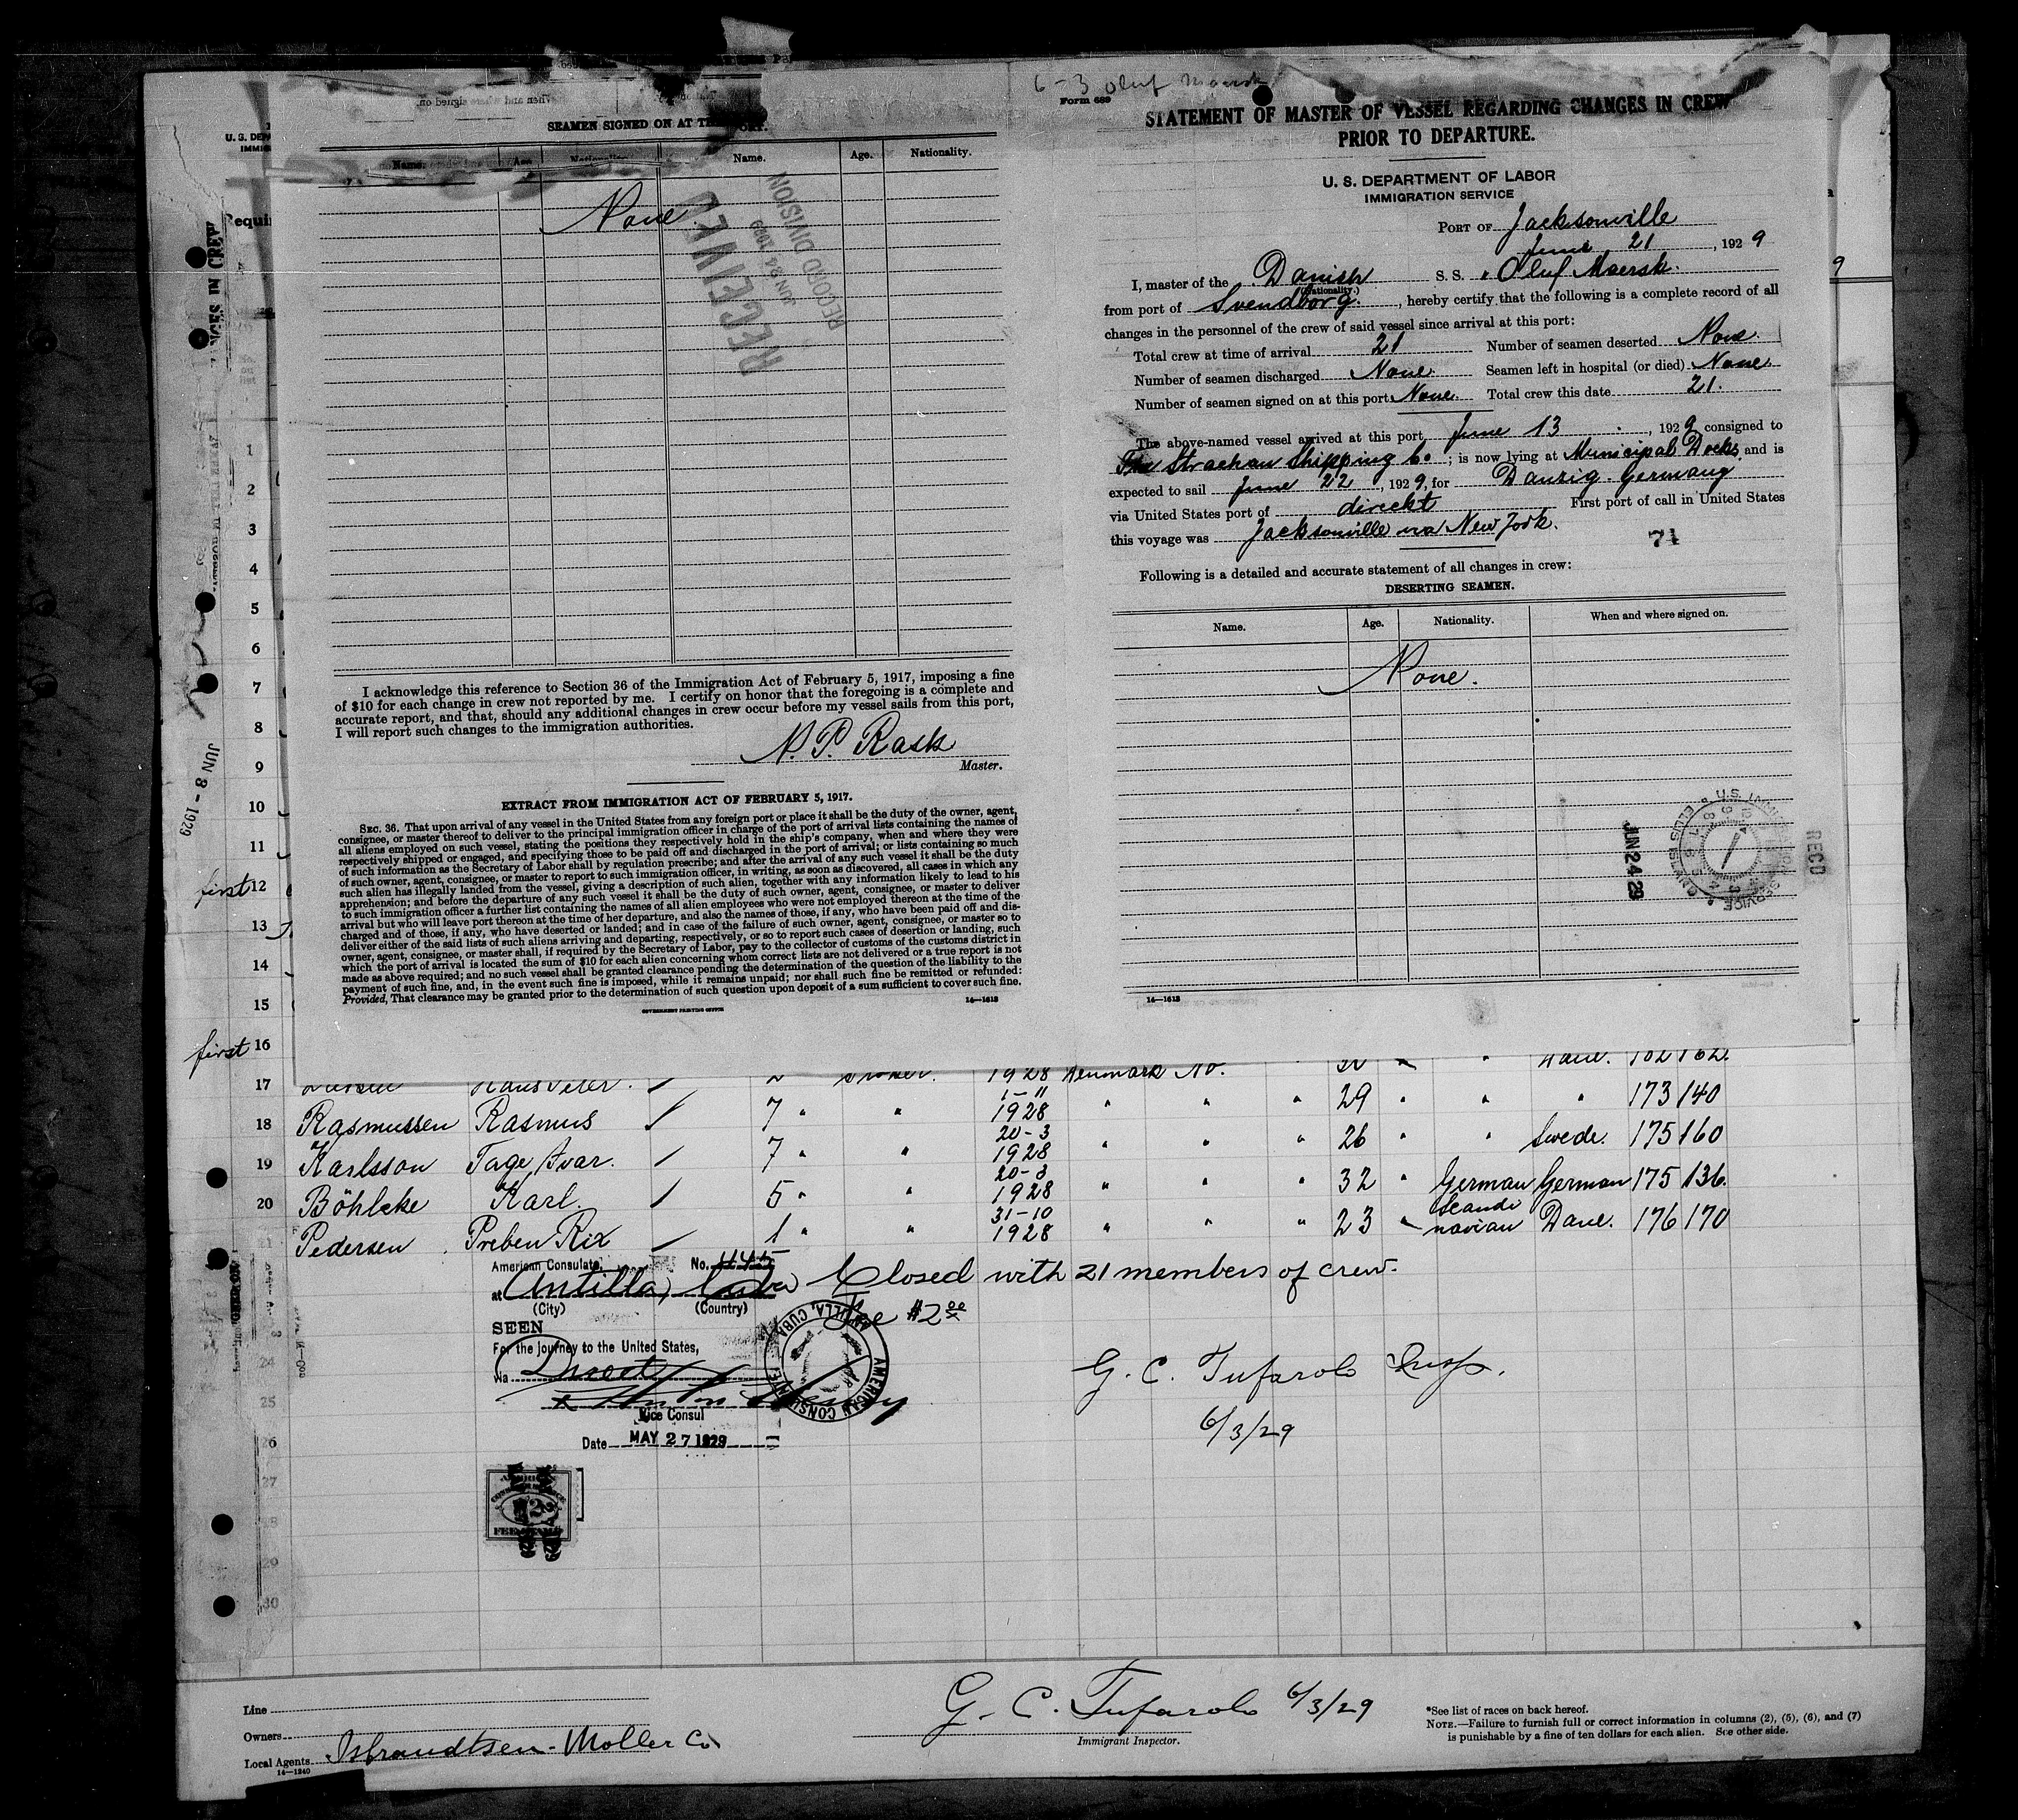 6-3 Oluf Maersk
Form 689
STATEMENT OF MASTER OF VESSEL REGARDING CHANGES IN CREW
PRIOR TO DEPARTURE.
U. S. DEPARTMENT OF LABOR
IMMIGRATION SERVICE
PORT OF Jacksonville
June 21, 1929
I, master of the Danish S. S. "Oluf Maersk.
(Nationality.)
from port of Svendborg., hereby certify that the following is a complete record of all
changes in the personnel of the crew of said vessel since arrival at this port:
Total crew at time of arrival 21 Number of seamen deserted None.
Number of seamen discharged None. Seamen left in hospital (or died) None.
Number of seamen signed on at this port None. Total crew this date 21.
The above-named vessel arrived at this port June 13, 1929 consigned to
The Strachan Shipping Co; is now lying at Municipal Docks, and is
expected to sail June 22, 1929, for Danzig. Germany
via United States port of direkt First port of call in United States
this voyage was Jacksonville via New York.
71
Following is a detailed and accurate statement of all changes in crew:
DESERTING SEAMEN.
Name. Age. Nationality. When and where signed on.
None.
JUN 24 29
RECD
14—1613
SEAMEN SIGNED ON AT THIS PORT.
Name. Age. Nationality. Name. Age. Nationality.
None
RECEIVED
JUN 24 1929
RECORD DIVISION
I acknowledge this reference to Section 36 of the Immigration Act of February 5, 1917, imposing a fine
of $10 for each change in crew not reported by me. I certify on honor that the foregoing is a complete and
accurate report, and that, should any additional changes in crew occur before my vessel sails from this port,
I will report such changes to the immigration authorities.
N. P. Rask
Master.
EXTRACT FROM IMMIGRATION ACT OF FEBRUARY 5, 1917.
SEC. 36. That upon arrival of any vessel in the United States from any foreign port or place it shall be the duty of the owner, agent,
consignee, or master thereof to deliver to the principal immigration officer in charge of the port of arrival lists containing the names of
all aliens employed on such vessel, stating the positions they respectively hold in the ship's company, when and where they were
respectively shipped or engaged, and specifying those to be paid off and discharged in the port of arrival; or lists containing so much
of such information as the Secretary of Labor shall by regulation prescribe; and after the arrival of any such vessel it shall be the duty
of such owner, agent, consignee, or master to report to such immigration officer, in writing, as soon as discovered, all cases in which any
such alien has illegally landed from the vessel, giving a description of such alien, together with any information likely to lead to his
apprehension; and before the departure of any such vessel it shall be the duty of such owner, agent, consignee, or master to deliver
to such immigration officer a further list containing the names of all alien employees who were not employed thereon at the time of the
arrival but who will leave port thereon at the time of her departure, and also the names of those, if any, who have been paid off and dis-
charged and of those, if any, who have deserted or landed; and in case of the failure of such owner, agent, consignee, or master so to
deliver either of the said lists of such aliens arriving and departing, respectively, or so to report such cases of desertion or landing, such
owner, agent, consignee, or master shall, if required by the Secretary of Labor, pay to the collector of customs of the customs district in
which the port of arrival is located the sum of $10 for each alien concerning whom correct lists are not delivered or a true report is not
made as above required; and no such vessel shall be granted clearance pending the determination of the question of the liability to the
payment of such fine, and, in the event such fine is imposed, while it remains unpaid; nor shall such fine be remitted or refunded:
Provided, That clearance may be granted prior to the determination of such question upon deposit of a sum sufficient to cover such fine.
14—1613
GOVERNMENT PRINTING OFFICE
JUN 8 - 1929
1
2
3
4
5
6
7
8
9
10
11
first 12
13
14
15
first 16
17 Hans Peter. 1928 Denmark No. Dane. 162 162.
18 Rasmussen Rasmus 7 " " 1-11 1928 " " " 29 " " " 173 140
19 Karlsson Tage Ivar. 7 " " 20-3 1928 " " " 26 " " Swede. 175 160
20 Böhlcke Karl. 5 " " 20-3 1928 " " " 32 " German German 175 136.
21 Pedersen Preben Rix 1 " " 31-10 1928 " " " 23 " Scandinavian Dane. 176 170
American Consulate, No. 445
at Antilla, Cuba Closed with 21 members of crew.
(City) (Country)
Fee $2.00
SEEN
For the journey to the United States,
via Direct
Vice Consul
Date MAY 27 1929
AMERICAN CONSULATE ANTILLA, CUBA
G. C. Tufarolo Insp.
6/3/29
24
25
26
27
28
29
30
Line
Owners
Local Agents Isbrandtsen-Moller Co
14—1240
G. C. Tufarolo 6/3/29
Immigrant Inspector.
*See list of races on back hereof.
NOTE.—Failure to furnish full or correct information in columns (2), (5), (6), and (7)
is punishable by a fine of ten dollars for each alien. See other side.